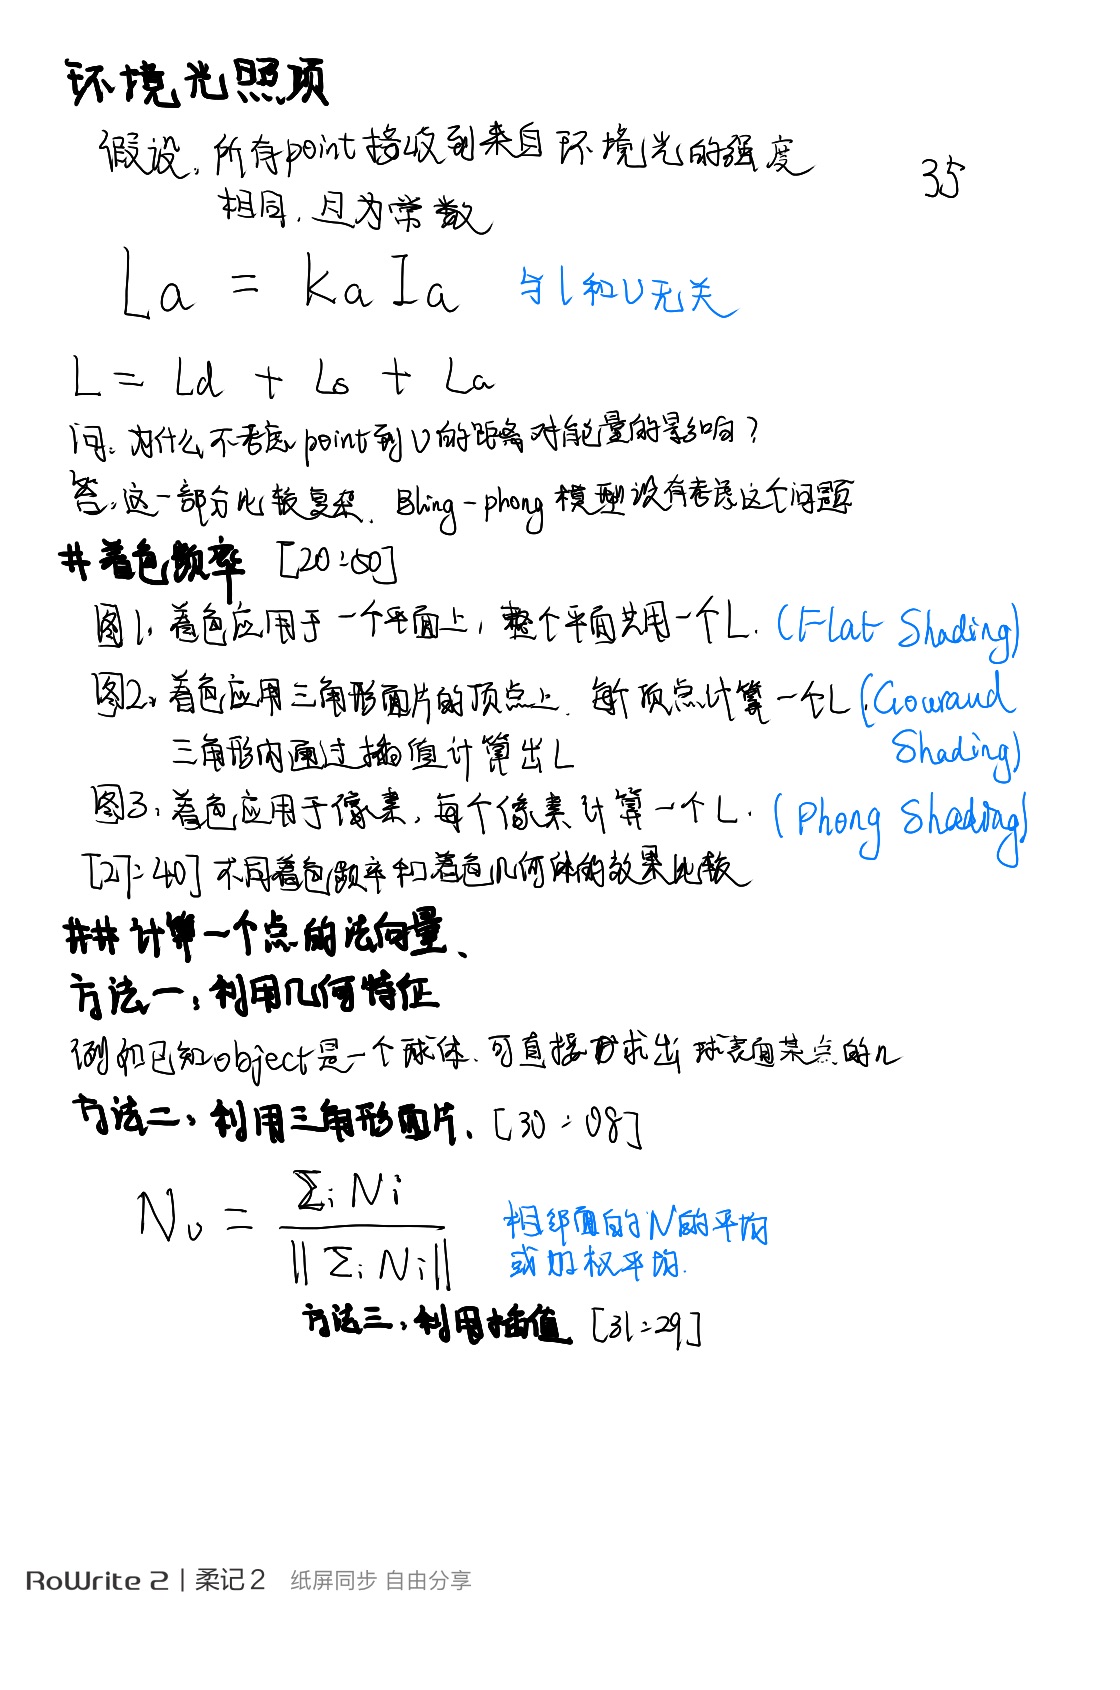 环境光照项
假设,所有point接收到来自环境光的强度
相同,且为常数
35
La = ka Ia 与l和v无关
L = Ld + Ls + La
问:为什么不考虑point到v的距离对能量的影响?
答:这一部分比较复杂. Bling-phong模型没有考虑这个问题
# 着色频率 [20:50]
图1:着色应用于一个平面上,整个平面共用一个L. (Flat Shading)
图2:着色应用三角形面片的顶点上.每个顶点计算一个L. (Gouraud
三角形内通过插值计算出L Shading)
图3:着色应用于像素,每个像素计算一个L. (Phong Shading)
[27:40] 不同着色频率和着色几何体的效果比较
## 计算一个点的法向量、
方法一:利用几何特征
例如已知object是一个球体.可直接求出球表面某点的n
方法二:利用三角形面片、[30:08]
Nv = Σi Ni / ||Σi Ni||
相邻面的N的平均
或加权平均.
方法三:利用插值 [31:29]
RoWrite 2 | 柔记2 纸屏同步 自由分享